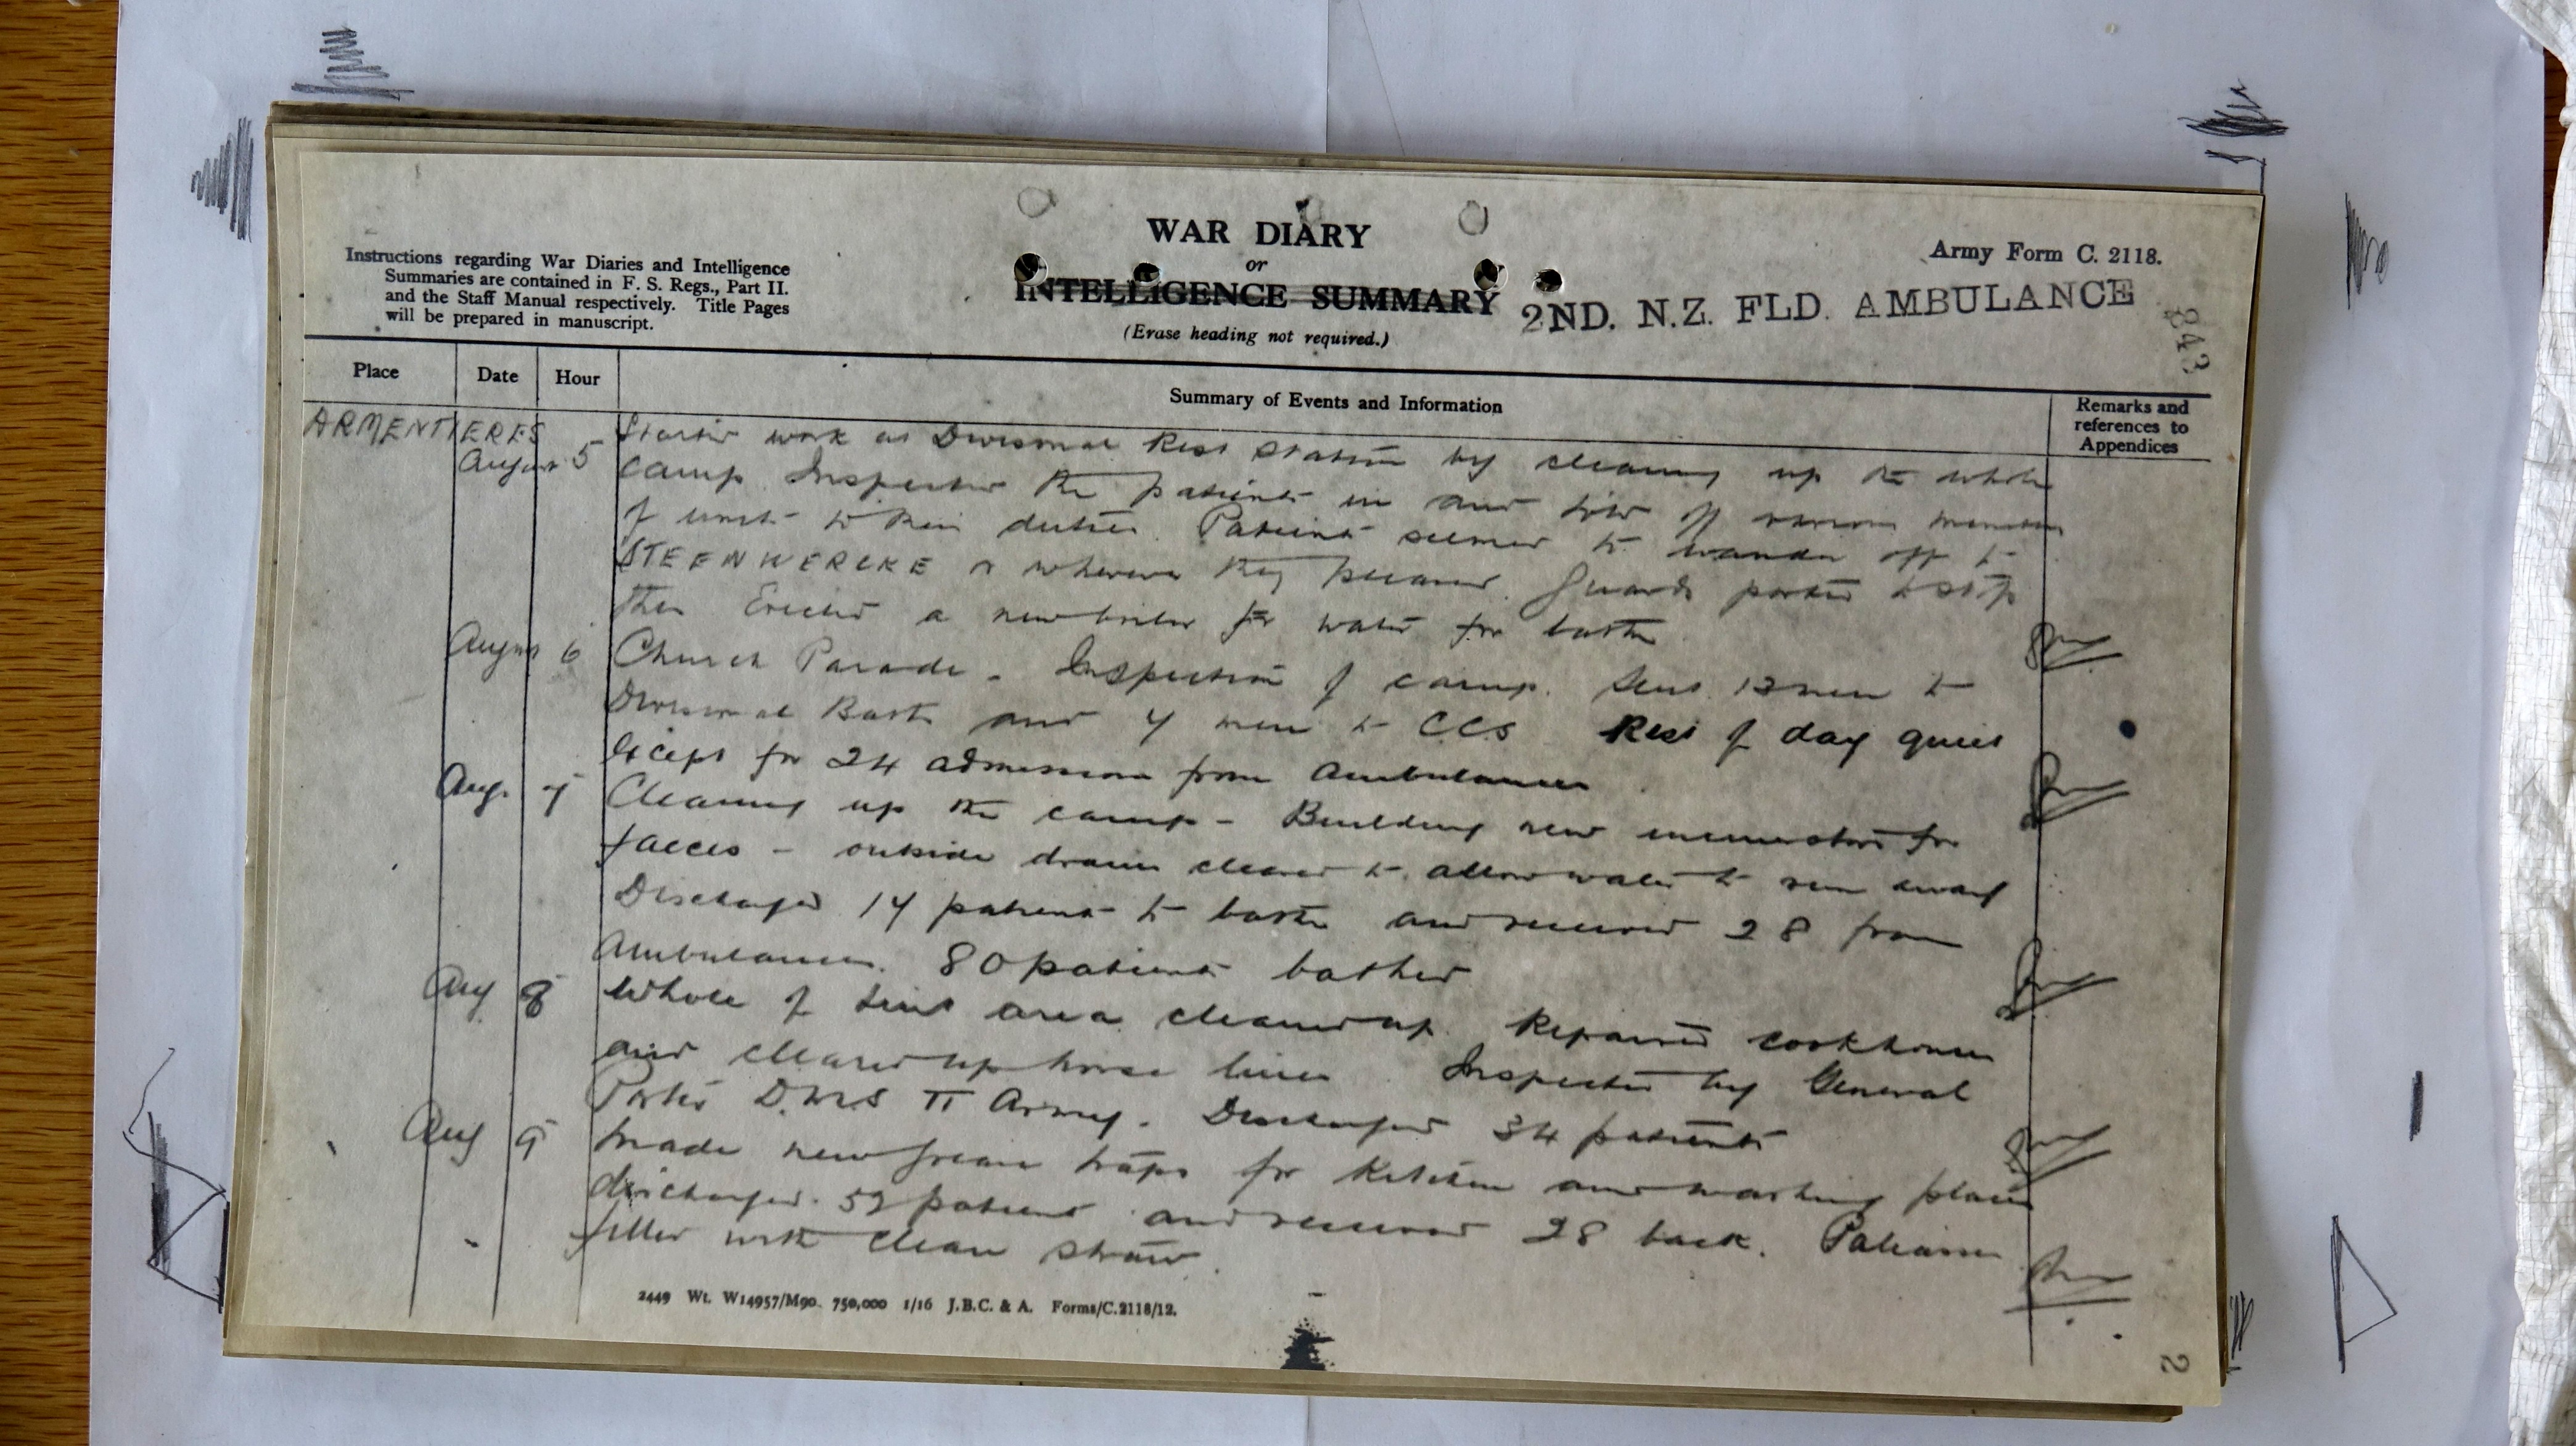 WAR DIARY
or
INTELLIGENCE SUMMARY
(Erase heading not required.)
Instructions regarding War Diaries and Intelligence
Summaries are contained in F. S. Regs., Part II.
and the Staff Manual respectively. Title Pages
will be prepared in manuscript.
Army Form C. 2118.
2ND. N.Z. FLD. AMBULANCE
843
Place Date Hour Summary of Events and Information Remarks and
references to
Appendices
ARMENTIERES Started work at Divisional Rest Station by cleaning up the whole
August 5 camp. Inspected the patients in and told off various members
of unit to their duties. Patients seemed to wander off to
STEENWERCKE or wherever they pleased. Guards posted to stop
this Erected a new boiler for water for baths
August 6 Church Parade - Inspection of camp. Sent 13 men to
Divisional Baths and 4 men to CCS Rest of day quiet
except for 24 admissions from Ambulances
Aug. 7 Cleaning up the camp - Building new incinerators for
faeces - outside drains cleared to allow water to run away
Discharged 14 patients to baths and received 28 from
Ambulances. 80 patients bathed
Aug 8 Whole of tent area cleaned up. Repaired cookhouse
and cleaned up horse lines. Inspected by General
Porter D.M.S II Army. Discharged 34 patients
Aug 9 Made new grease traps for kitchen and washing place
discharged 52 patients and received 28 back.
filled with clean straw.
2449 Wt. W14957/M90 750,000 1/16 J.B.C. & A. Forms/C.2118/12.
2